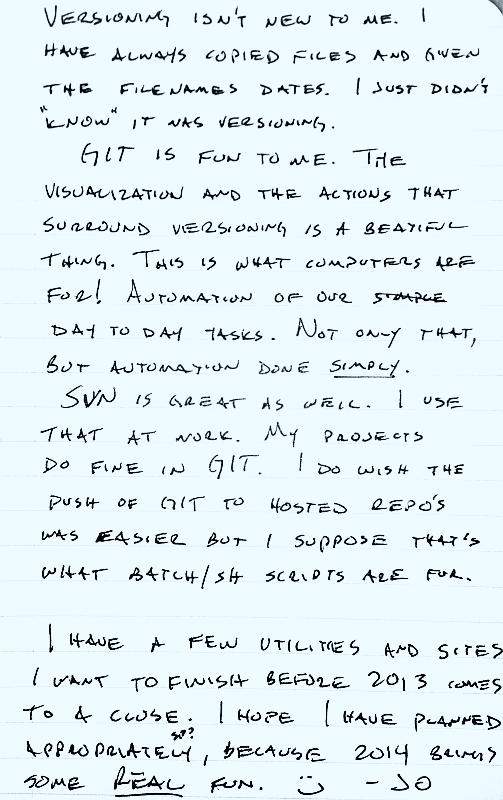 VERSIONING ISN'T NEW TO ME. I
HAVE ALWAYS COPIED FILES AND GIVEN
THE FILENAMES DATES. I JUST DIDN'T
"KNOW" IT WAS VERSIONING.
GIT IS FUN TO ME. THE
VISUALIZATION AND THE ACTIONS THAT
SURROUND VERSIONING IS A BEATIFUL
THING. THIS IS WHAT COMPUTERS ARE
FOR! AUTOMATION OF OUR SIMPLE
DAY TO DAY TASKS. NOT ONLY THAT,
BUT AUTOMATION DONE SIMPLY.
SVN IS GREAT AS WELL. I USE
THAT AT WORK. MY PROJECTS
DO FINE IN GIT. I DO WISH THE
PUSH OF GIT TO HOSTED REPO'S
WAS EASIER BUT I SUPPOSE THAT'S
WHAT BATCH/SH SCRIPTS ARE FOR.
I HAVE A FEW UTILITIES AND SITES
I WANT TO FINISH BEFORE 2013 COMES
TO A CLOSE. I HOPE I HAVE PLANNED
sp?
APPROPRIATELY, BECAUSE 2014 BRINGS
SOME REAL FUN. :) - JO